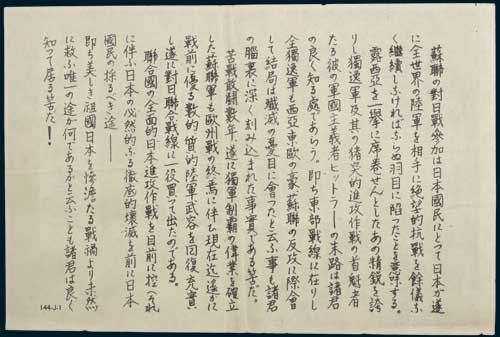 蘇聯の對日戰參加は日本國民にとつて日本が遂
に全世界の陸軍を相手に絶望的抗戰を餘儀ふ
く繼續しふければふらぬ羽目に陥つたことを意味する。
露西亞を一擧に席卷せんとしたあの精鋭を誇
りし獨逸軍及其の猪突的進攻作戰の首魁者
たる彼の軍國主義者ヒットラーの末路は諸君
の良く知る處であらう。即ち東部戰線に在りし
全獨逸軍も西亞東歐の豪蘇聯の反攻に際會
して結局は殲滅の憂目に會つたと云ふ事も諸君
の腦裏に深く刻み込まれた事實である筈だ。
苦戰敢鬪數年、遂に獨軍制覇の偉業を確立
した蘇聯軍も歐州戰の終焉に伴ひ現在迄遙かに
戰前に優る數的、質的陸軍武容を囘復充實
し遂に對日聯合戰線に一役買つて出たのである。
聯合國の全面的日本進攻作戰を目前に控へ、それ
に伴ふ日本の必然的ふる徹底的壞滅を前に日本
國民の採るべき途——
即ち美しき祖國日本を慘澹たる戰禍より未然
に救ふ唯一の途が何であるかと云ふことも諸君は良く
知つて居る筈だ！
144-J-1